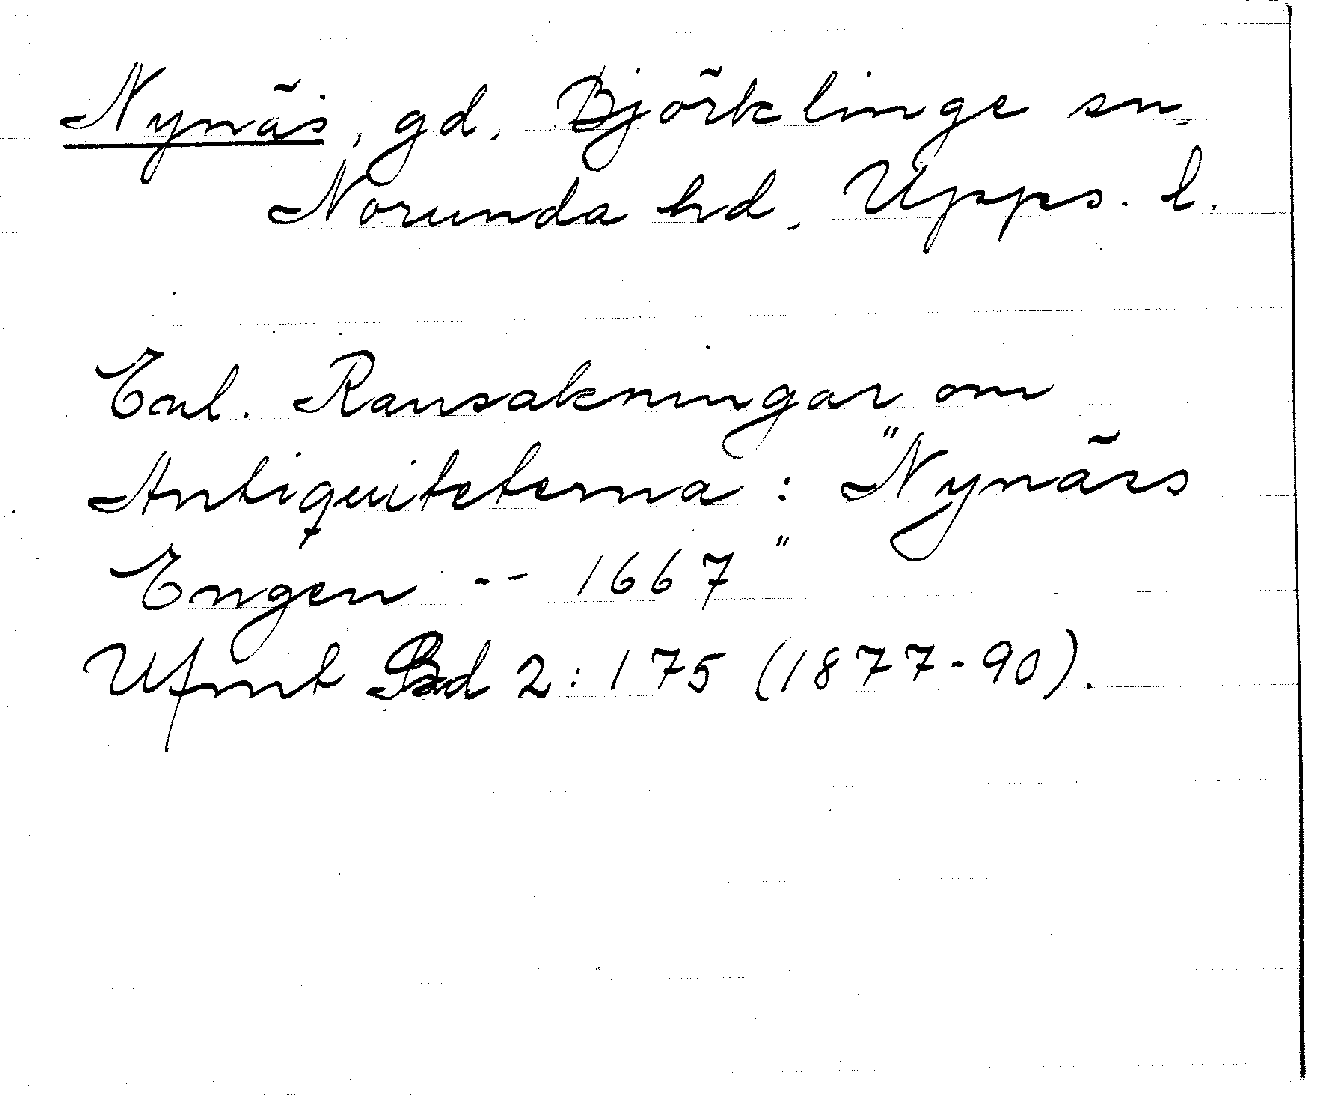 Nynäs, gd. Björklinge sn.
Norunda hd. Upps. l.
Enl. Ransakningar om
Antiquiteterna: "Nynäs
Engen -- 1667"
Ufmt Bd 2:175 (1877-90).